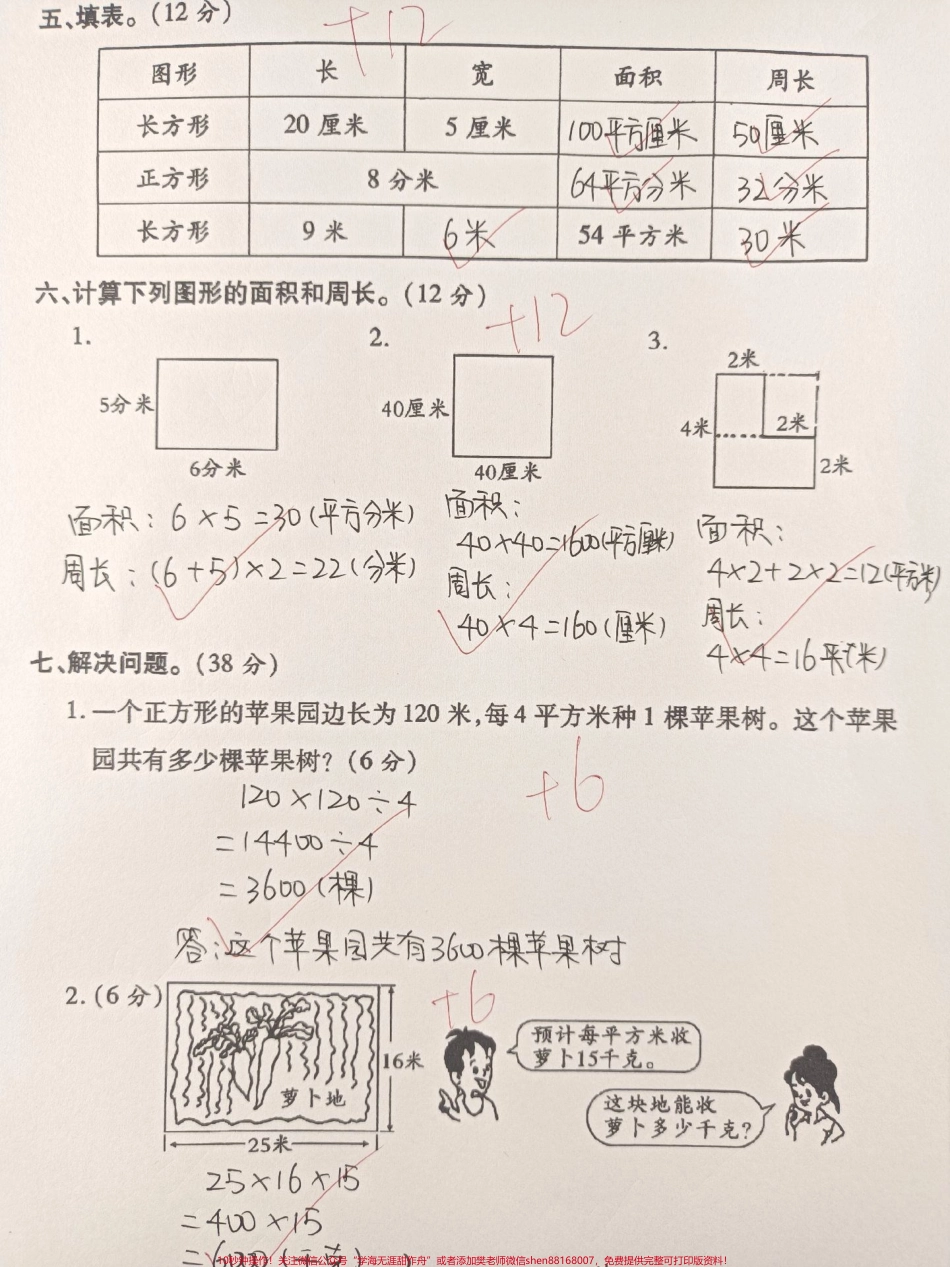 五、填表。(12分)
+12
图形 长 宽 面积 周长
长方形 20厘米 5厘米 100平方厘米 50厘米
正方形 8分米 64平方分米 32分米
长方形 9米 6米 54平方米 30米
六、计算下列图形的面积和周长。(12分)
+12
1. 2. 3.
5分米
6分米
40厘米
40厘米
2米
4米
2米
2米
面积：6×5=30(平方分米)
周长：(6+5)×2=22(分米)
面积：
40×40=1600(平方厘米)
周长：
40×4=160(厘米)
面积：
4×2+2×2=12(平方米)
周长：
4×4=16(米)
七、解决问题。(38分)
1.一个正方形的苹果园边长为120米,每4平方米种1棵苹果树。这个苹果
园共有多少棵苹果树?(6分)
+6
120×120÷4
=14400÷4
=3600(棵)
答：这个苹果园共有3600棵苹果树
2.(6分)
+6
16米
萝卜地
25米
预计每平方米收
萝卜15千克。
这块地能收
萝卜多少千克?
25×16×15
=400×15
10秒钟操作！关注微信公众号“学海无涯甜作舟”或者添加樊老师微信shen88168007，免费提供完整可打印版资料！